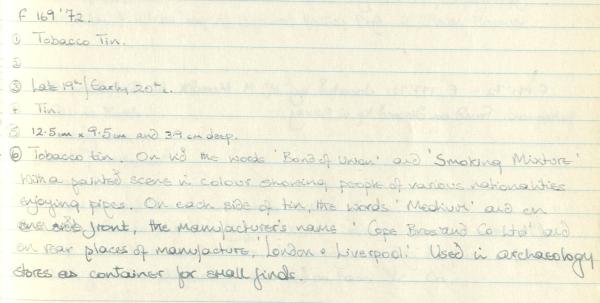 F 169 '72.
① Tobacco Tin.
②
③ Late 19th/Early 20th c.
4 Tin.
5 12.5cm x 9.5cm and 3.9 cm deep.
⑥ Tobacco tin. On lid the words 'Bond of Union' and 'Smoking Mixture'
with a painted scene in colour showing people of various nationalities
enjoying pipes. On each side of tin, the words 'Medium' and on
front, the manufacturer's name 'Cope Bros and Co Ltd' and
on rear places of manufacture, 'London & Liverpool.' Used in archaeology
stores as container for small finds.